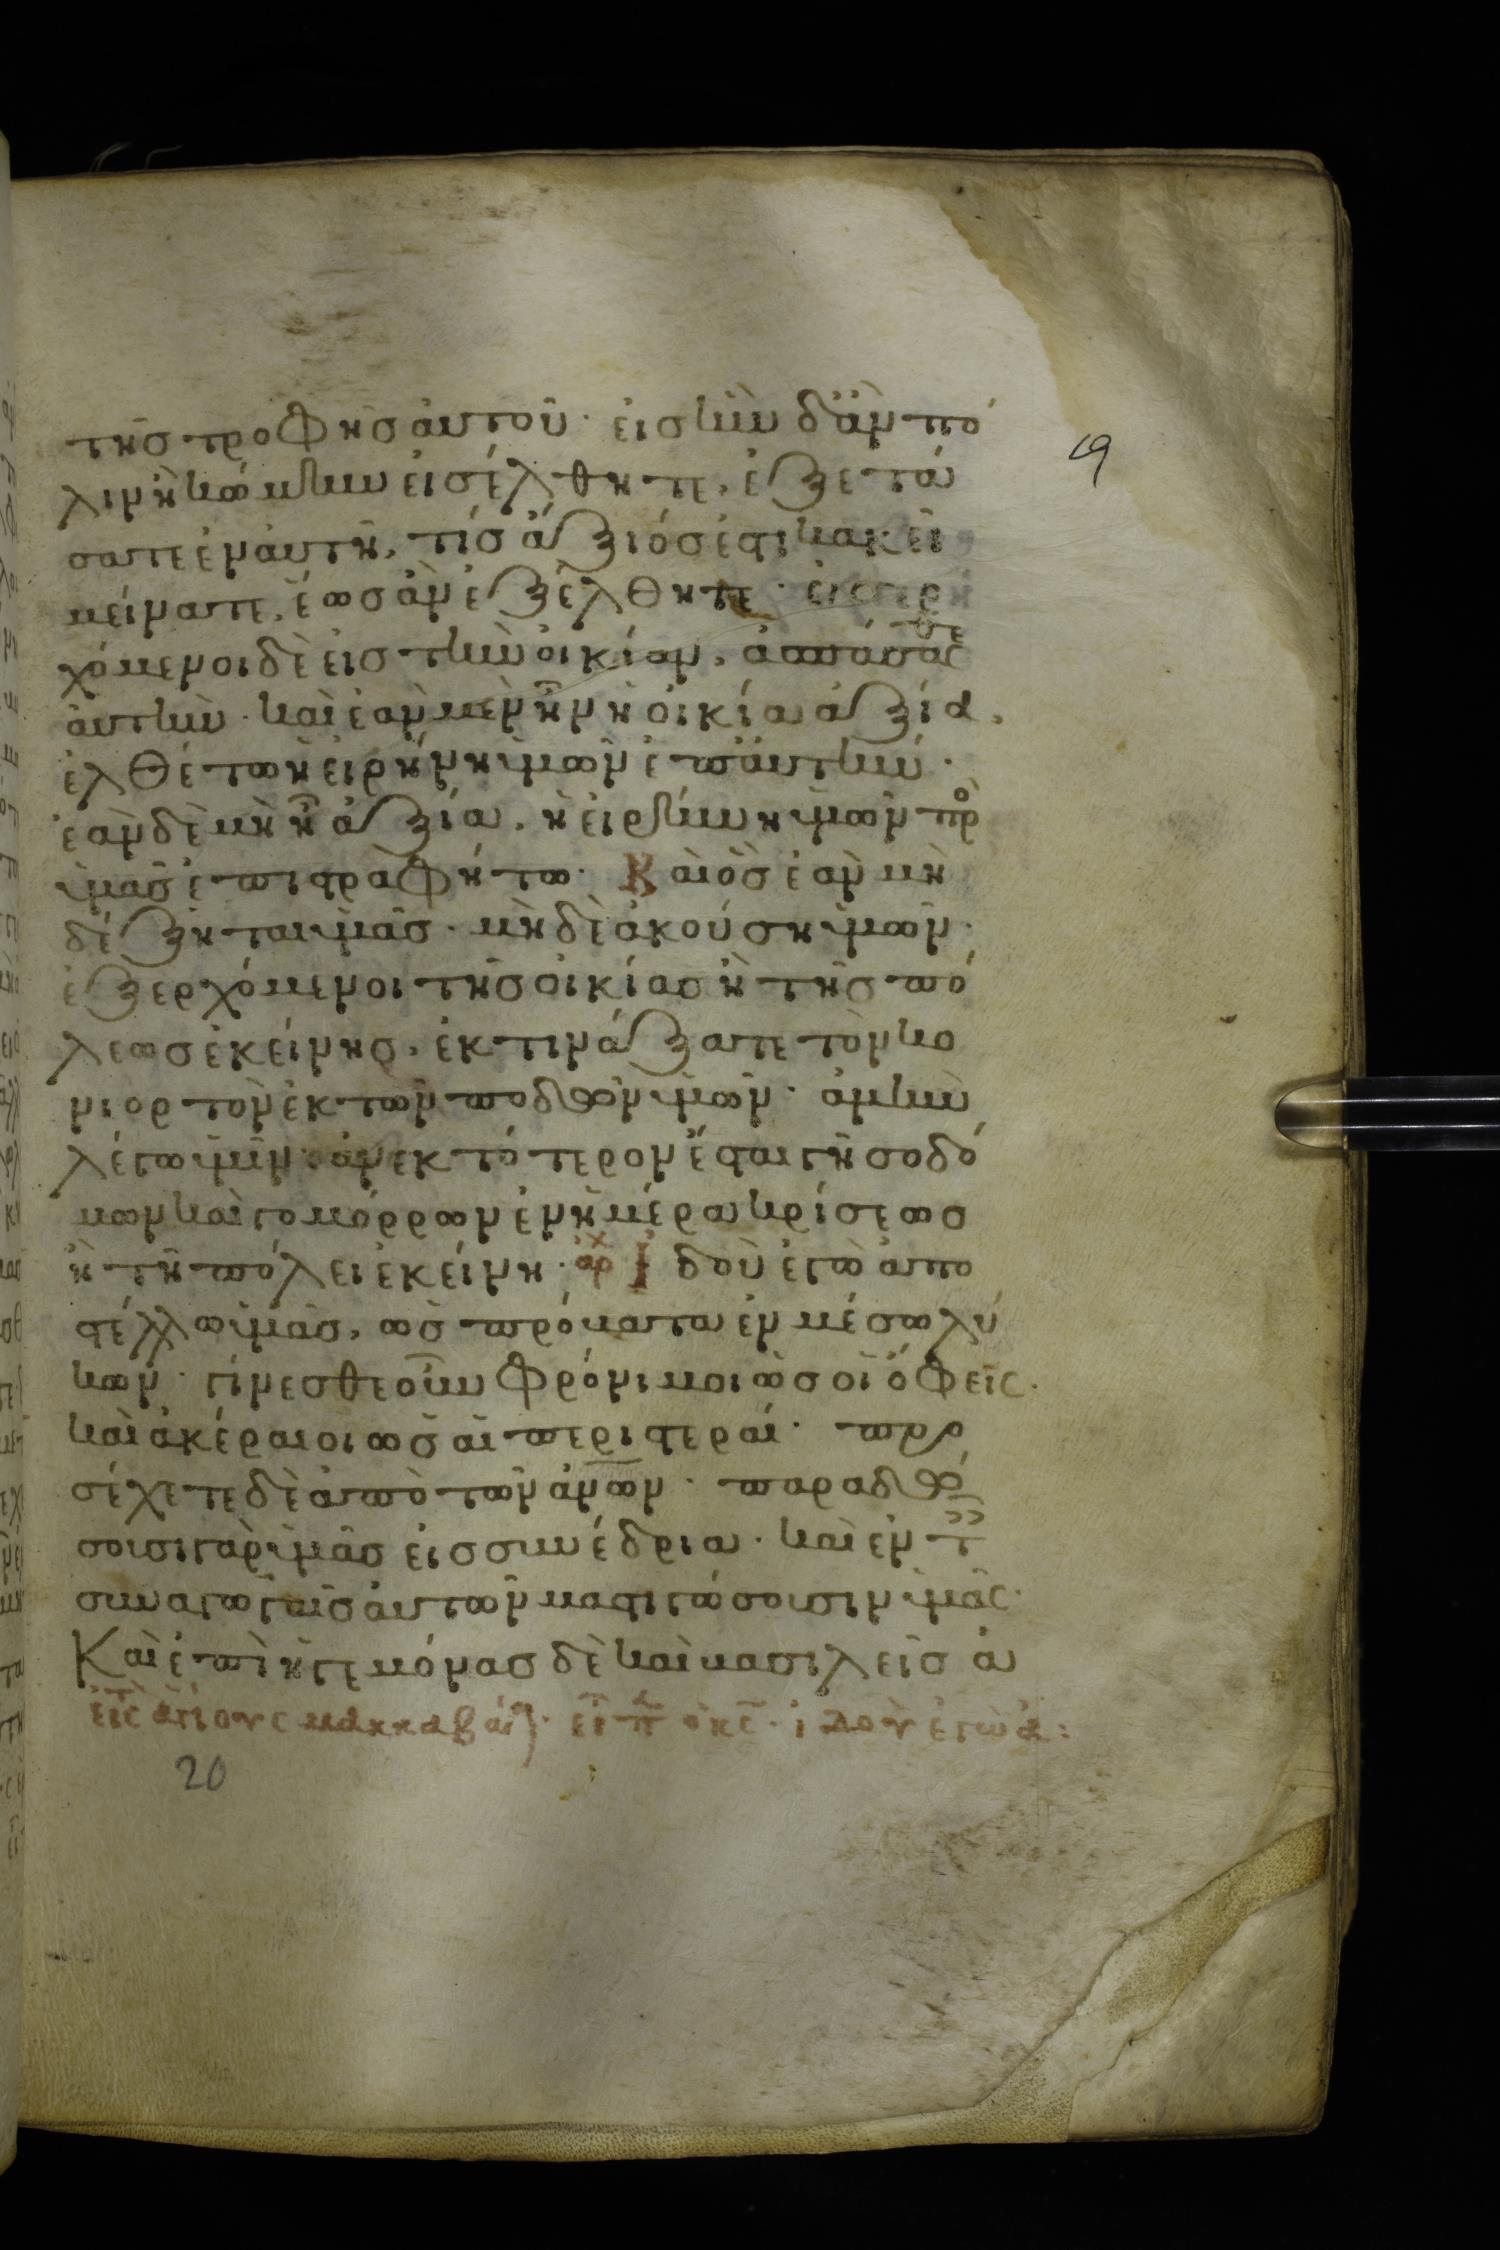 τῆς τροφῆς αὐτοῦ· εἰς ἣν δ' ἂν πό
λιν ἢ κώμην εἰσέλθητε, ἐξετά
σατε ἐν αὐτῇ, τίς ἄξιός ἐστι κακεῖ
μείνατε, ἕως ἂν ἐξέλθητε· εἰσερ
χόμενοι δὲ εἰς τὴν οἰκίαν, ἀσπάσασθε
αὐτήν· καὶ ἐὰν μὲν ἦν ἡ οἰκία ἀξία,
ἐλθέτω ἡ εἰρήνη ὑμῶν ἐπ' αὐτήν·
ἐὰν δὲ μὴ ἦ ἀξία, ἡ εἰρήνη ὑμῶν πρὸ
ὑμᾶς ἐπιστραφήτω· Καὶ ὃς ἐὰν μὴ
δέξηται ὑμᾶς· μὴ δὲ ἀκούση ὑμῶν·
ἐξερχόμενοι τῆς οἰκίας ἢ τῆς πό
λεως ἐκείνης, ἐκτινάξατε τὸν κο
νιορτὸν ἐκ τῶν ποδῶν ὑμῶν· ἀμὴν
λέγω ὑμῖν· ἀνεκτότερον ἔσται γῆ σοδό
μων καὶ γομόρρων ἐν ἡμέρα κρίσεως
ἢ τῇ πόλει ἐκείνη· ἀρχ Ἰδοὺ ἐγὼ ἀπο
στέλλω ὑμᾶς, ὡς πρόβατα ἐν μέσω λύ
κων· γίνεσθε οὖν φρόνιμοι ὡς οἱ ὄφεις·
καὶ ἀκέραιοι ὡς αἱ περιστεραί· προ
σέχετε δὲ ἀπὸ τῶν ἀνων· παραδώ
σουσι γὰρ ὑμᾶς εἰς συνέδρια· καὶ ἐν τ
συναγωγαῖς αὐτῶν μαστιγώσουσιν ὑμᾶς·
Καὶ ἐπὶ ἡγεμόνας δὲ καὶ βασιλεῖς ἀ
εἰς ἁγίους μακκαβαί· εἶπ ὁ κς· ἰδοὺ ἐγὼ ἀ:
19
20